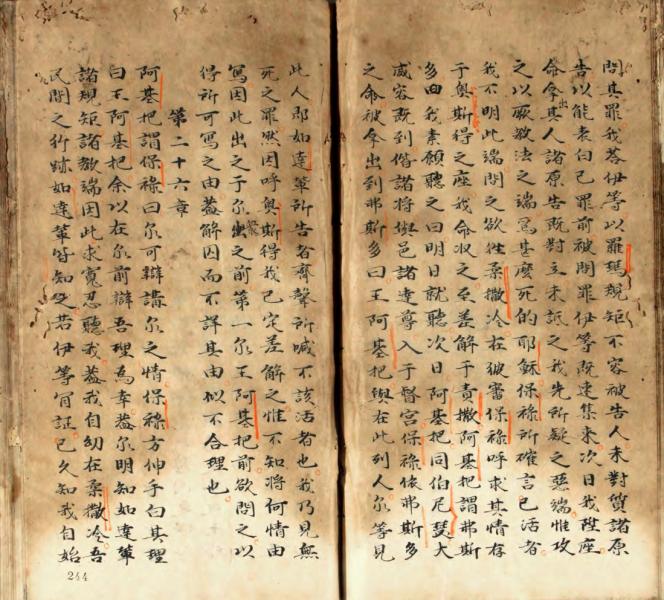 問其罪我荅伊等以羅瑪規矩不容被告人未對質諸原
告以能表白己罪前被問罪伊等既速集來次日我陞座
命拿出其人諸原告既對立未訴之我先所疑之惡端惟攻
之以厥教法之端焉甚麼死的耶穌保祿所確言已活者
我不明此端問之欲徃柔撒冷在彼審保祿呼求其情存
于奧斯得之座我命收之至差解于責撒阿基把謂弗斯
多曰我素願聽之曰明日就聽次日阿基把同伯尼瑟大
威容既到偕諸將與邑諸達尊入于督宮保祿依弗斯多
之命被拿出到弗斯多曰王阿基把與在此列人尔等見
此人即如達葷所告者齊聲所喊不該活者也我乃見無
死之罪然因呼奧斯得我已定差解之惟不知將何情由
寫因此出之于尔衆之前第一尔王阿基把前欲問之以
得所可寫之由葢解因而不詳其由似不合理也
第二十六章
阿基把謂保祿曰尔可辯講尔之情保祿方伸手白其理
曰王阿基把余以在尔前辯吾理為幸葢尔明知如達葷
諸規矩諸教端因此求寬忍聽我葢我自幼在柔撒冷吾
民間之行跡如達葷皆知之若伊等肯証已久知我自始
244